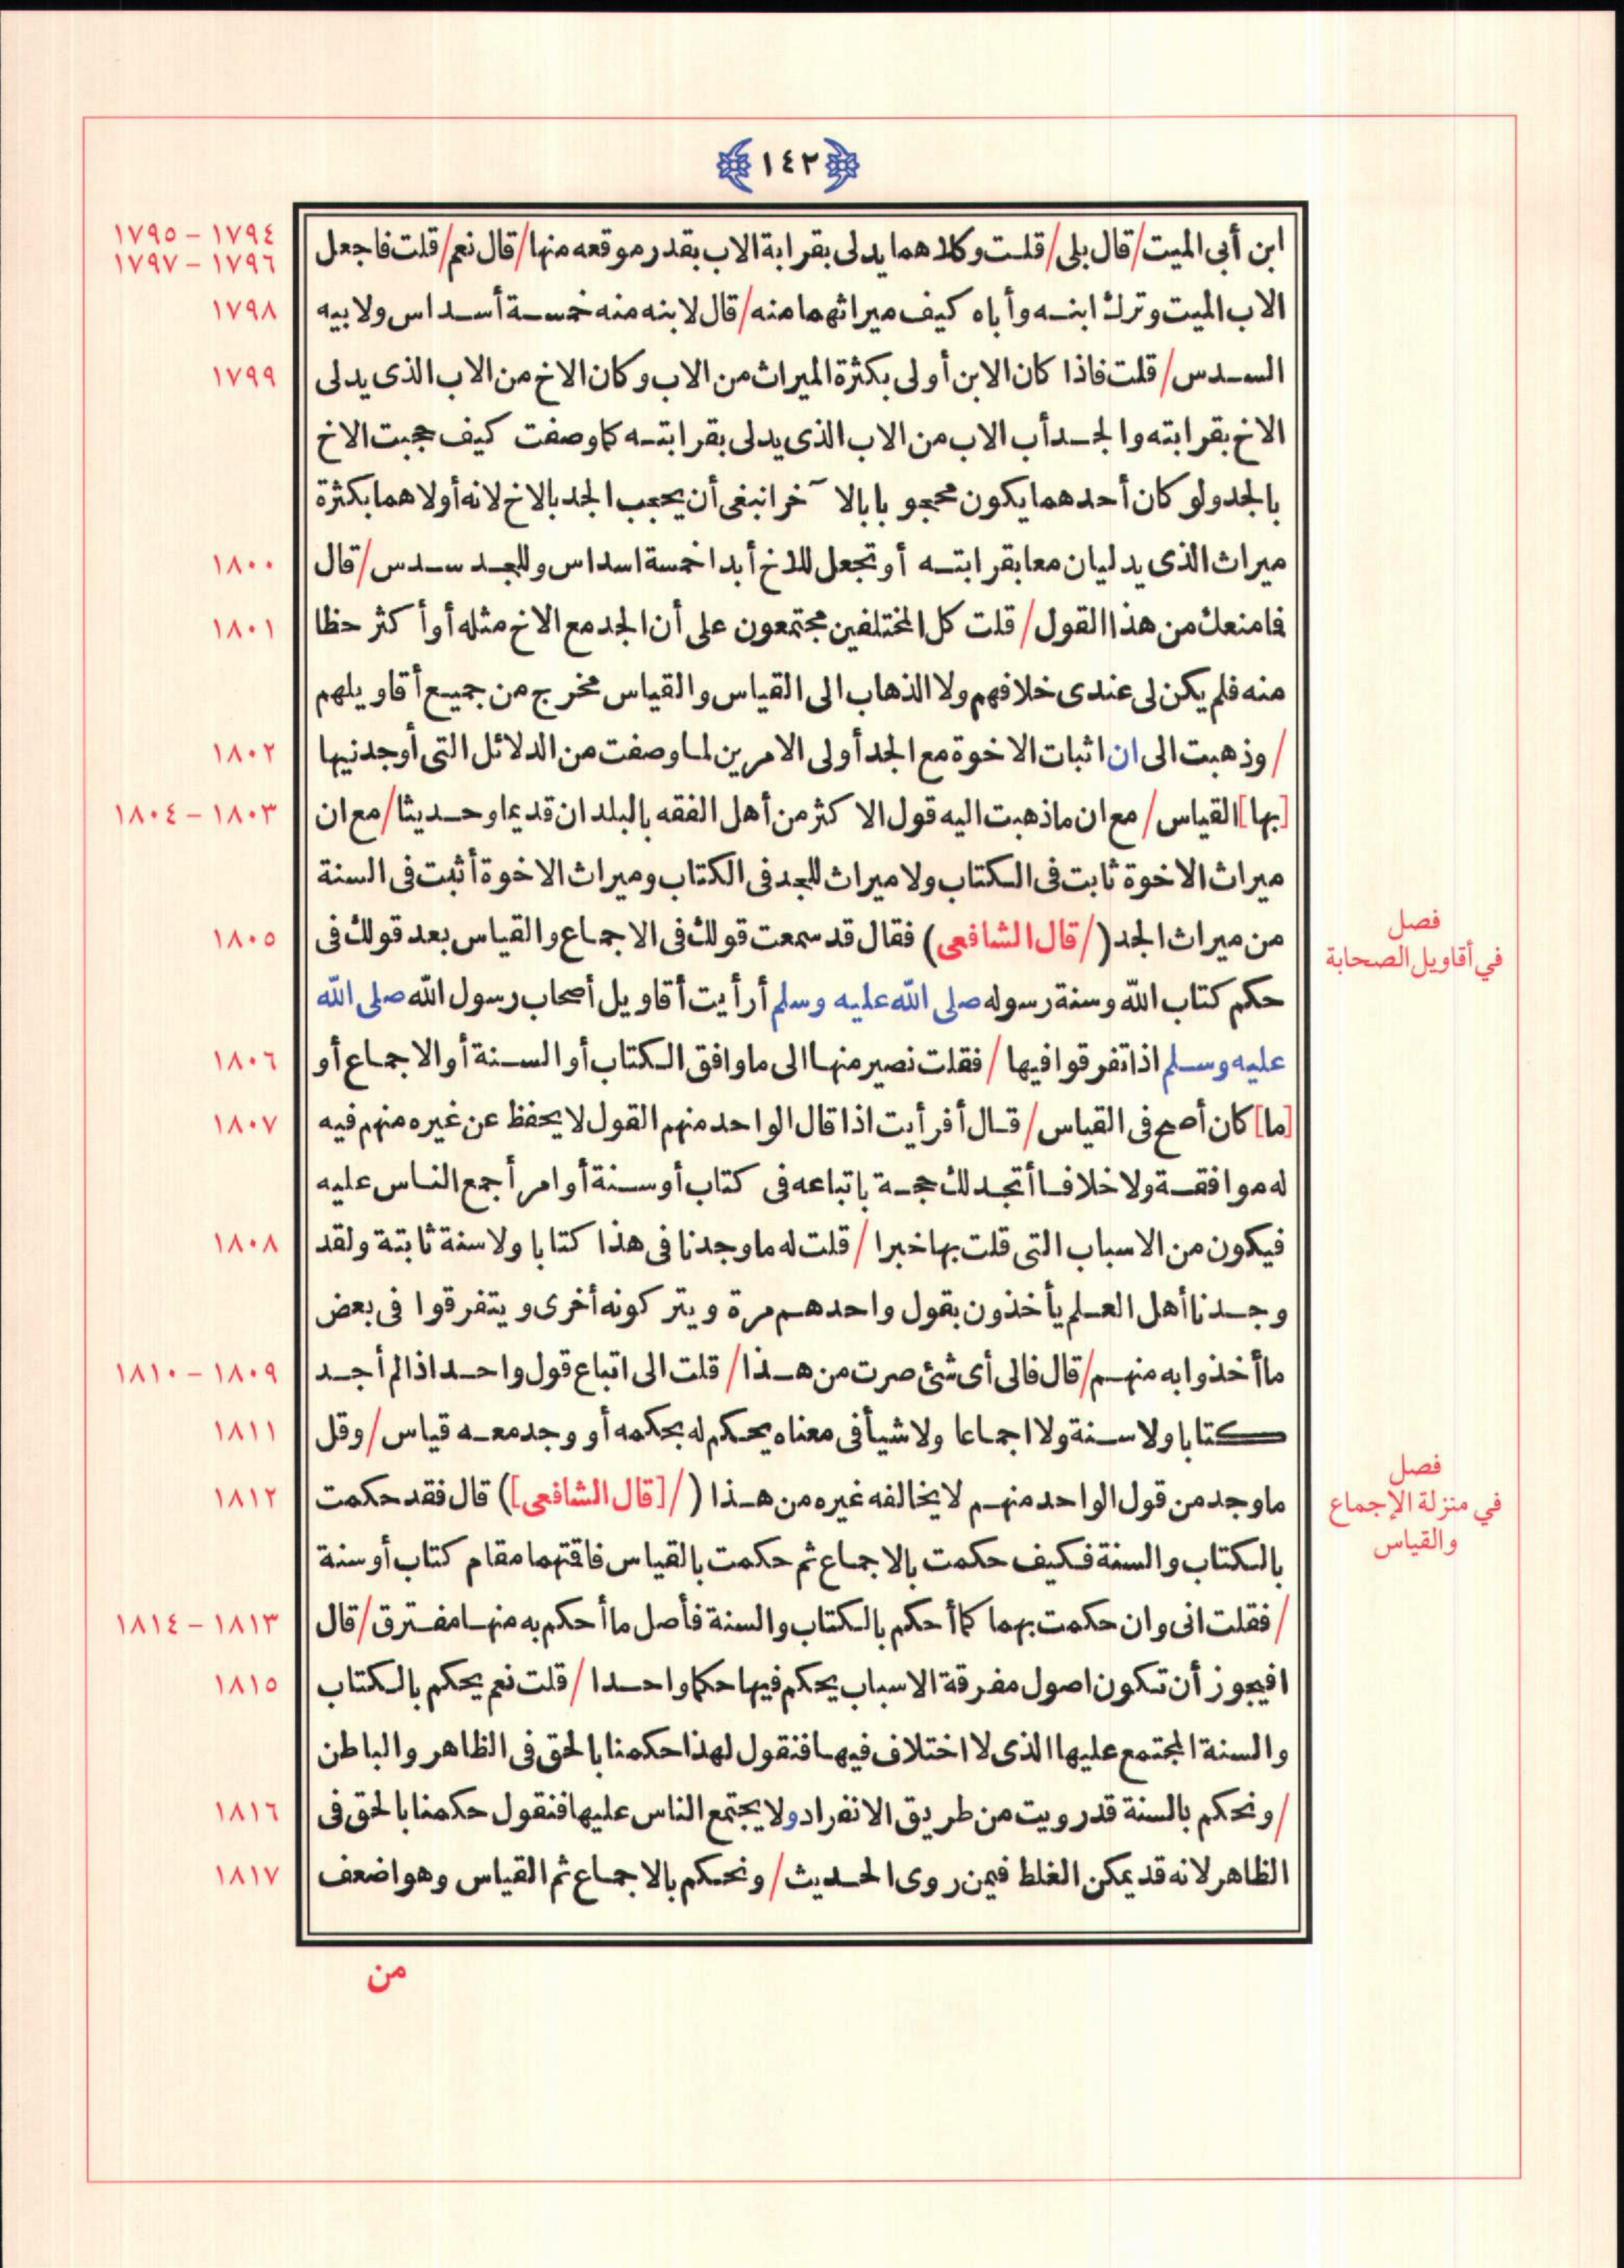 ١٤٢
١٧٩٤ – ١٧٩٥
١٧٩٦ – ١٧٩٧
ابن أبى الميت/قال بلى/قلت وكلاهما يدلى بقرابة الاب بقدر موقعه منها/قال نعم/قلت فاجعل
الاب الميت وترك ابنه وأباه كيف ميراثهما منه/قال لابنه منه خمسة أسداس ولابيه
١٧٩٨
السدس/قلت فاذا كان الابن أولى بكثرة الميراث من الاب وكان الاخ من الاب الذى يدلى
١٧٩٩
الاخ بقرابته والجد أب الاب من الاب الذى يدلى بقرابته كما وصفت كيف حجبت الاخ
بالجد ولو كان أحدهما يكون محجوبا بالآخر انبغى أن يحجب الجد بالاخ لانه أولاهما بكثرة
ميراث الذى يدليان معا بقرابته أو تجعل للاخ أبدا خمسة اسداس وللجد سدس/قال
١٨٠٠
فامنعك من هذا القول/قلت كل المختلفين مجتمعون على أن الجد مع الاخ مثله أو أكثر حظا
١٨٠١
منه فلم يكن لى عندى خلافهم ولا الذهاب الى القياس والقياس مخرج من جميع أقاويلهم
/وذهبت الى ان اثبات الاخوة مع الجد أولى الامرين لما وصفت من الدلائل التى أوجدنيها
١٨٠٢
[بها] القياس/مع ان ماذهبت اليه قول الاكثر من أهل الفقه بالبلدان قديما وحديثا/مع ان
١٨٠٣ – ١٨٠٤
ميراث الاخوة ثابت فى الكتاب ولا ميراث للجد فى الكتاب وميراث الاخوة أثبت فى السنة
من ميراث الجد (/قال الشافعى) فقال قد سمعت قولك فى الاجماع والقياس بعد قولك فى
١٨٠٥
فصل
في أقاويل الصحابة
حكم كتاب الله وسنة رسوله صلى الله عليه وسلم أرأيت أقاويل أصحاب رسول الله صلى الله
عليه وسلم اذا تفرقوا فيها/فقلت نصير منها الى ما وافق الكتاب أو السنة أو الاجماع أو
١٨٠٦
[ما] كان أصح فى القياس/قال أفرأيت اذا قال الواحد منهم القول لا يحفظ عن غيره منهم فيه
١٨٠٧
له موافقة ولا خلافا أتجد لك حجة باتباعه فى كتاب أو سنة أو امر أجمع الناس عليه
فيكون من الاسباب التى قلت بها خبرا/قلت له ما وجدنا فى هذا كتابا ولا سنة ثابتة ولقد
١٨٠٨
وجدنا أهل العلم يأخذون بقول واحدهم مرة ويتركونه أخرى ويتفرقوا فى بعض
ما أخذوا به منهم/قال فالى أى شئ صرت من هذا/قلت الى اتباع قول واحد اذا لم أجد
١٨٠٩ – ١٨١٠
كتابا ولا سنة ولا اجماعا ولا شيأ فى معناه يحكم له بحكمه أو وجد معه قياس/وقل
١٨١١
ما وجد من قول الواحد منهم لا يخالفه غيره من هذا (/[قال الشافعى]) قال فقد حكمت
١٨١٢
فصل
في منزلة الإجماع
والقياس
بالكتاب والسنة فكيف حكمت بالاجماع ثم حكمت بالقياس فاقتهما مقام كتاب أو سنة
/فقلت انى وان حكمت بهما كما أحكم بالكتاب والسنة فأصل ما أحكم به منها مفترق/قال
١٨١٣ – ١٨١٤
افيجوز أن تكون اصول مفرقة الاسباب يحكم فيها حكما واحدا/قلت نعم يحكم بالكتاب
١٨١٥
والسنة المجتمع عليها الذى لا اختلاف فيها فنقول لهذا حكمنا بالحق فى الظاهر والباطن
/ونحكم بالسنة قد رويت من طريق الانفراد ولا يجتمع الناس عليها فنقول حكمنا بالحق فى
١٨١٦
الظاهر لانه قد يمكن الغلط فيمن روى الحديث/ونحكم بالاجماع ثم القياس وهو اضعف
١٨١٧
من